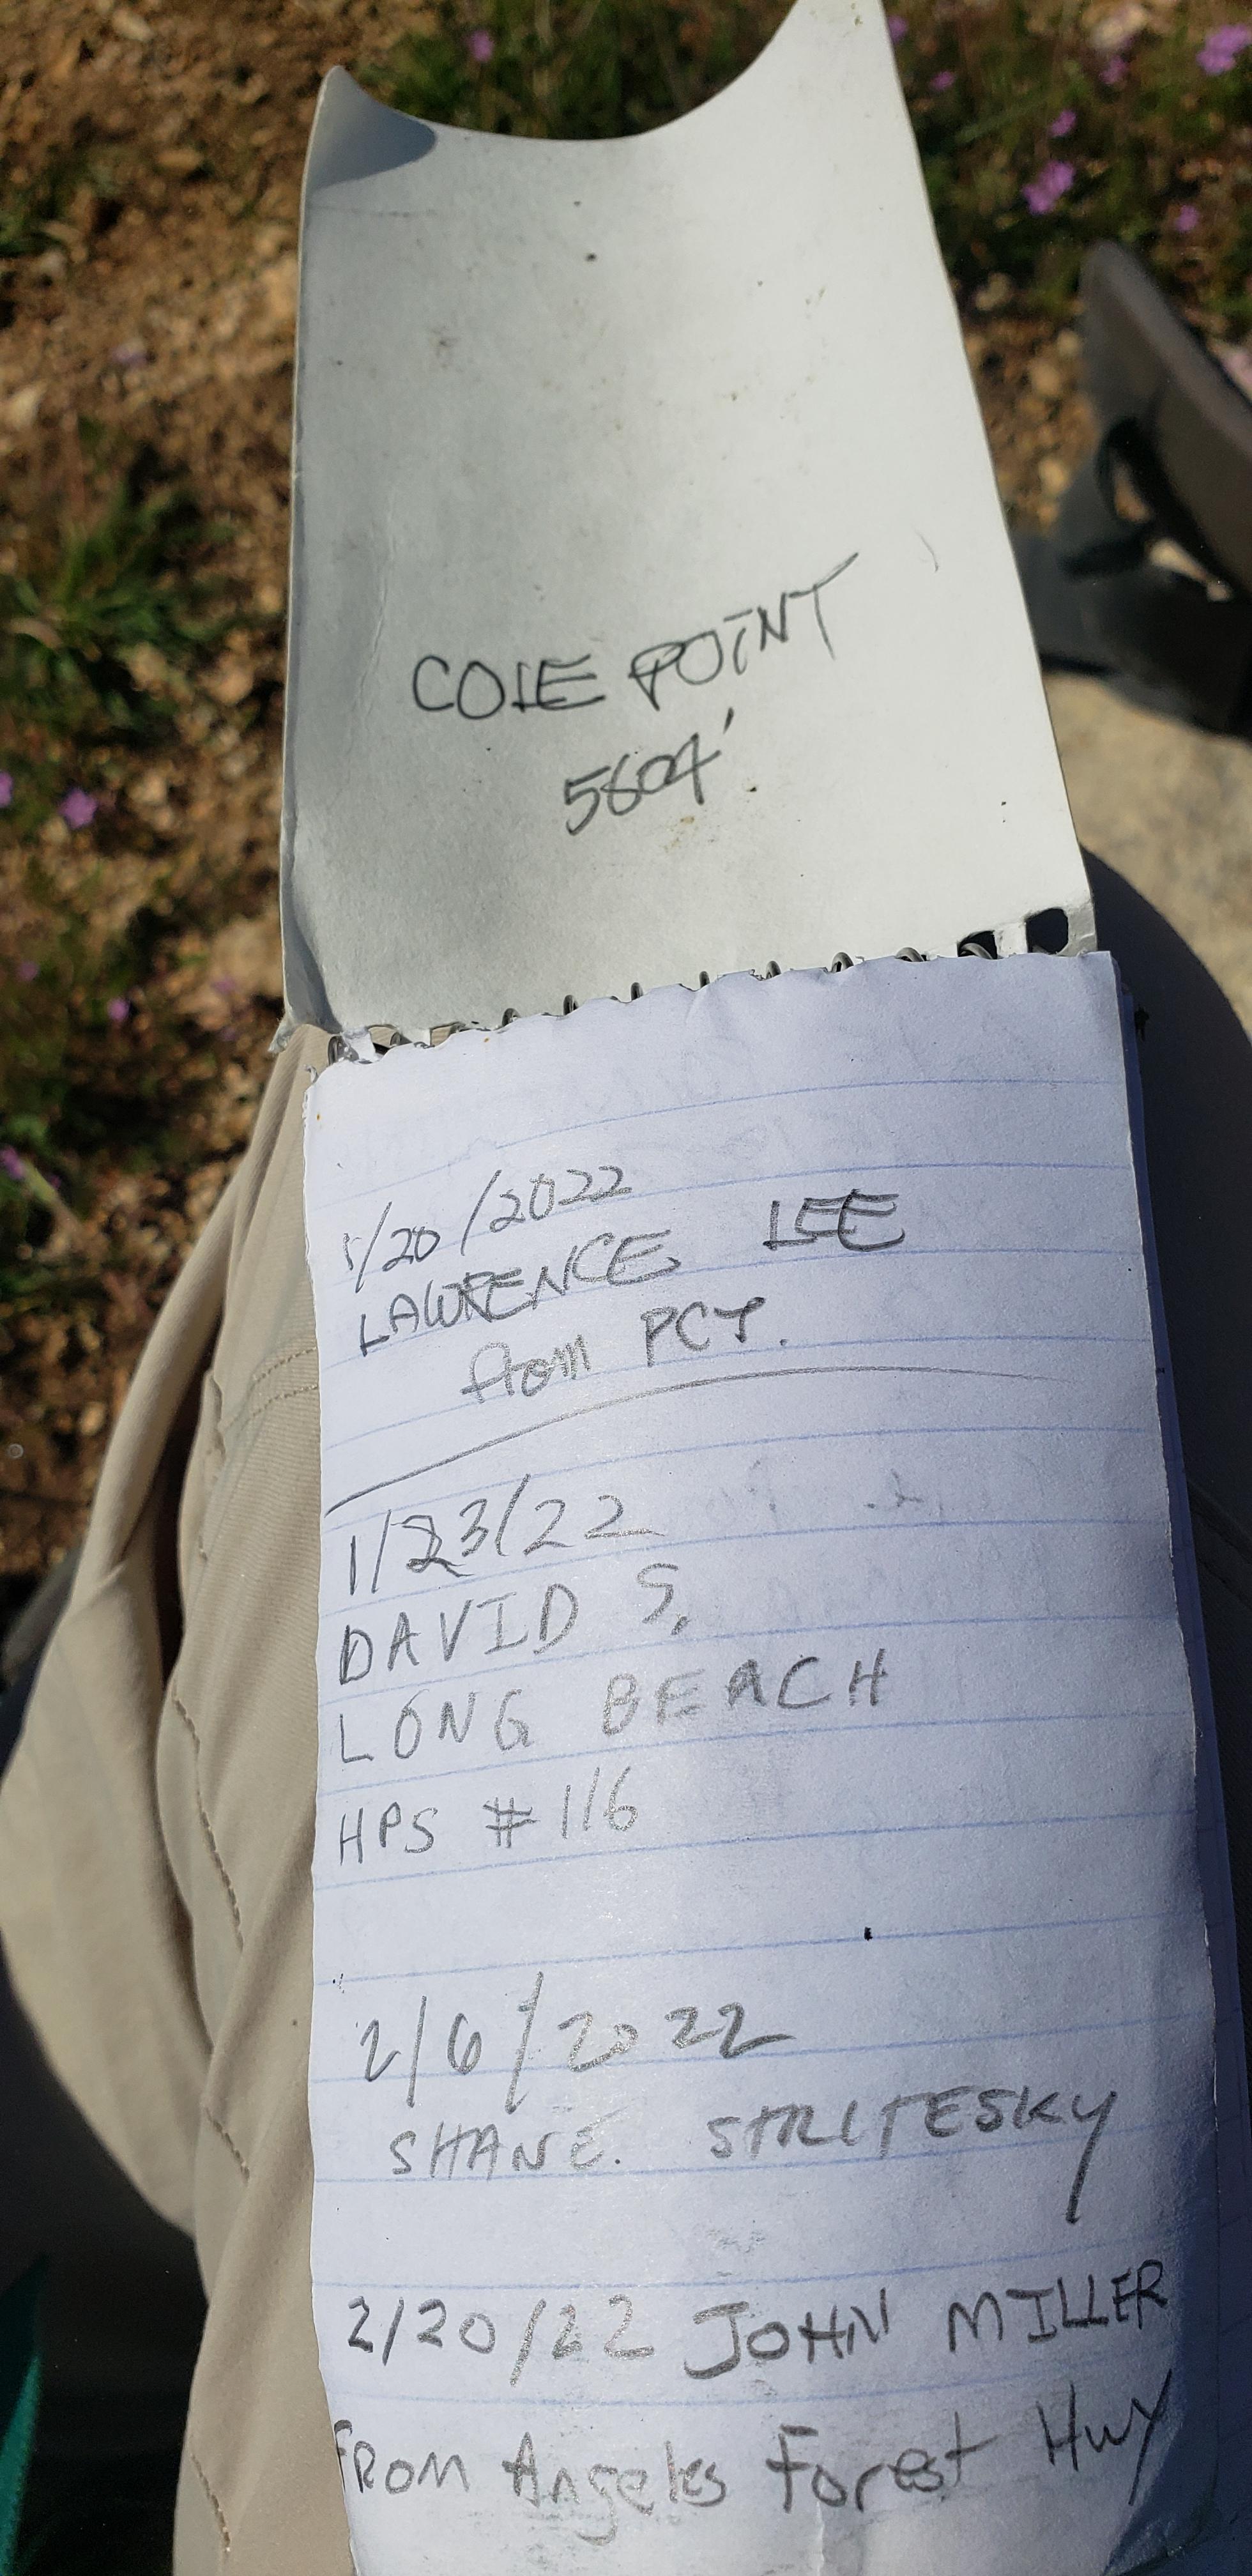 COLE POINT
5604'
1/20/2022
LAWRENCE LEE
from PCT.
1/23/22
DAVID S.
LONG BEACH
HPS #116
2/6/2022
SHANE. STRITESKY
2/20/22 JOHN MILLER
FROM Angeles Forest Hwy